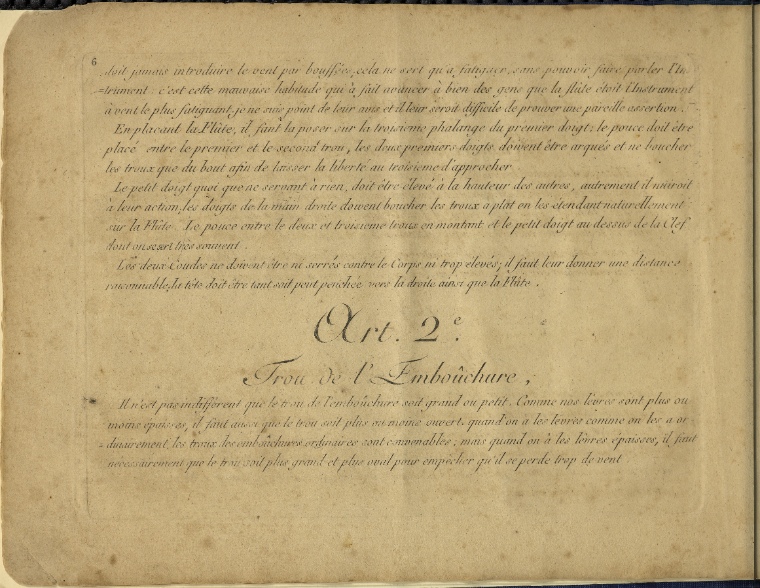 6
doit jamais introduire le vent par bouffée, cela ne sert qu'à fatiguer, sans pouvoir faire parler l'Ins
=trument. c'est cette mauvaise habitude qui à fait avancer à bien des gens que la flûte étoit l'Instrument
à vent le plus fatiguant, je ne suis point de leur avis et il leur seroit difficile de prouver une pareille assertion.
En plaçant la Flûte, il faut la poser sur la troisieme phalange du premier doigt: le pouce doit être
placé entre le premier et le second trou, les deux premiers doigts doivent être arqués et ne boucher
les troux que du bout afin de laisser la liberté au troisieme d'approcher
Le petit doigt quoi que ne servant à rien, doit être élevé à la hauteur des autres, autrement il nuiroit
à leur action, les doigts de la main droite doivent boucher les troux à plat en les étendant naturellement
sur la Flûte. Le pouce entre le deux et troisieme troux en montant et le petit doigt au dessus de la Clef
dont on se sert très souvent.
Les deux Coudes ne doivent être ni serrés contre le Corps ni trop élevés; il faut leur donner une distance
raisonnable, la tête doit être tant soit peut penchée vers la droite ainsi que la Flûte.
Art. 2e.
Trou de l'Embouchure,
Il n'est pas indifférent que le trou de l'embouchure soit grand ou petit. Comme nos lèvres sont plus ou
moins épaisses, il faut aussi que le trou soit plus ou moins ouvert. quand on a les lèvres comme on les a or
=dinairement, les troux des embouchures ordinaires sont convenables; mais quand on à les lèvres épaisses, il faut
nécessairement que le trou soit plus grand et plus oval pour empêcher qu'il se perde trop de vent.